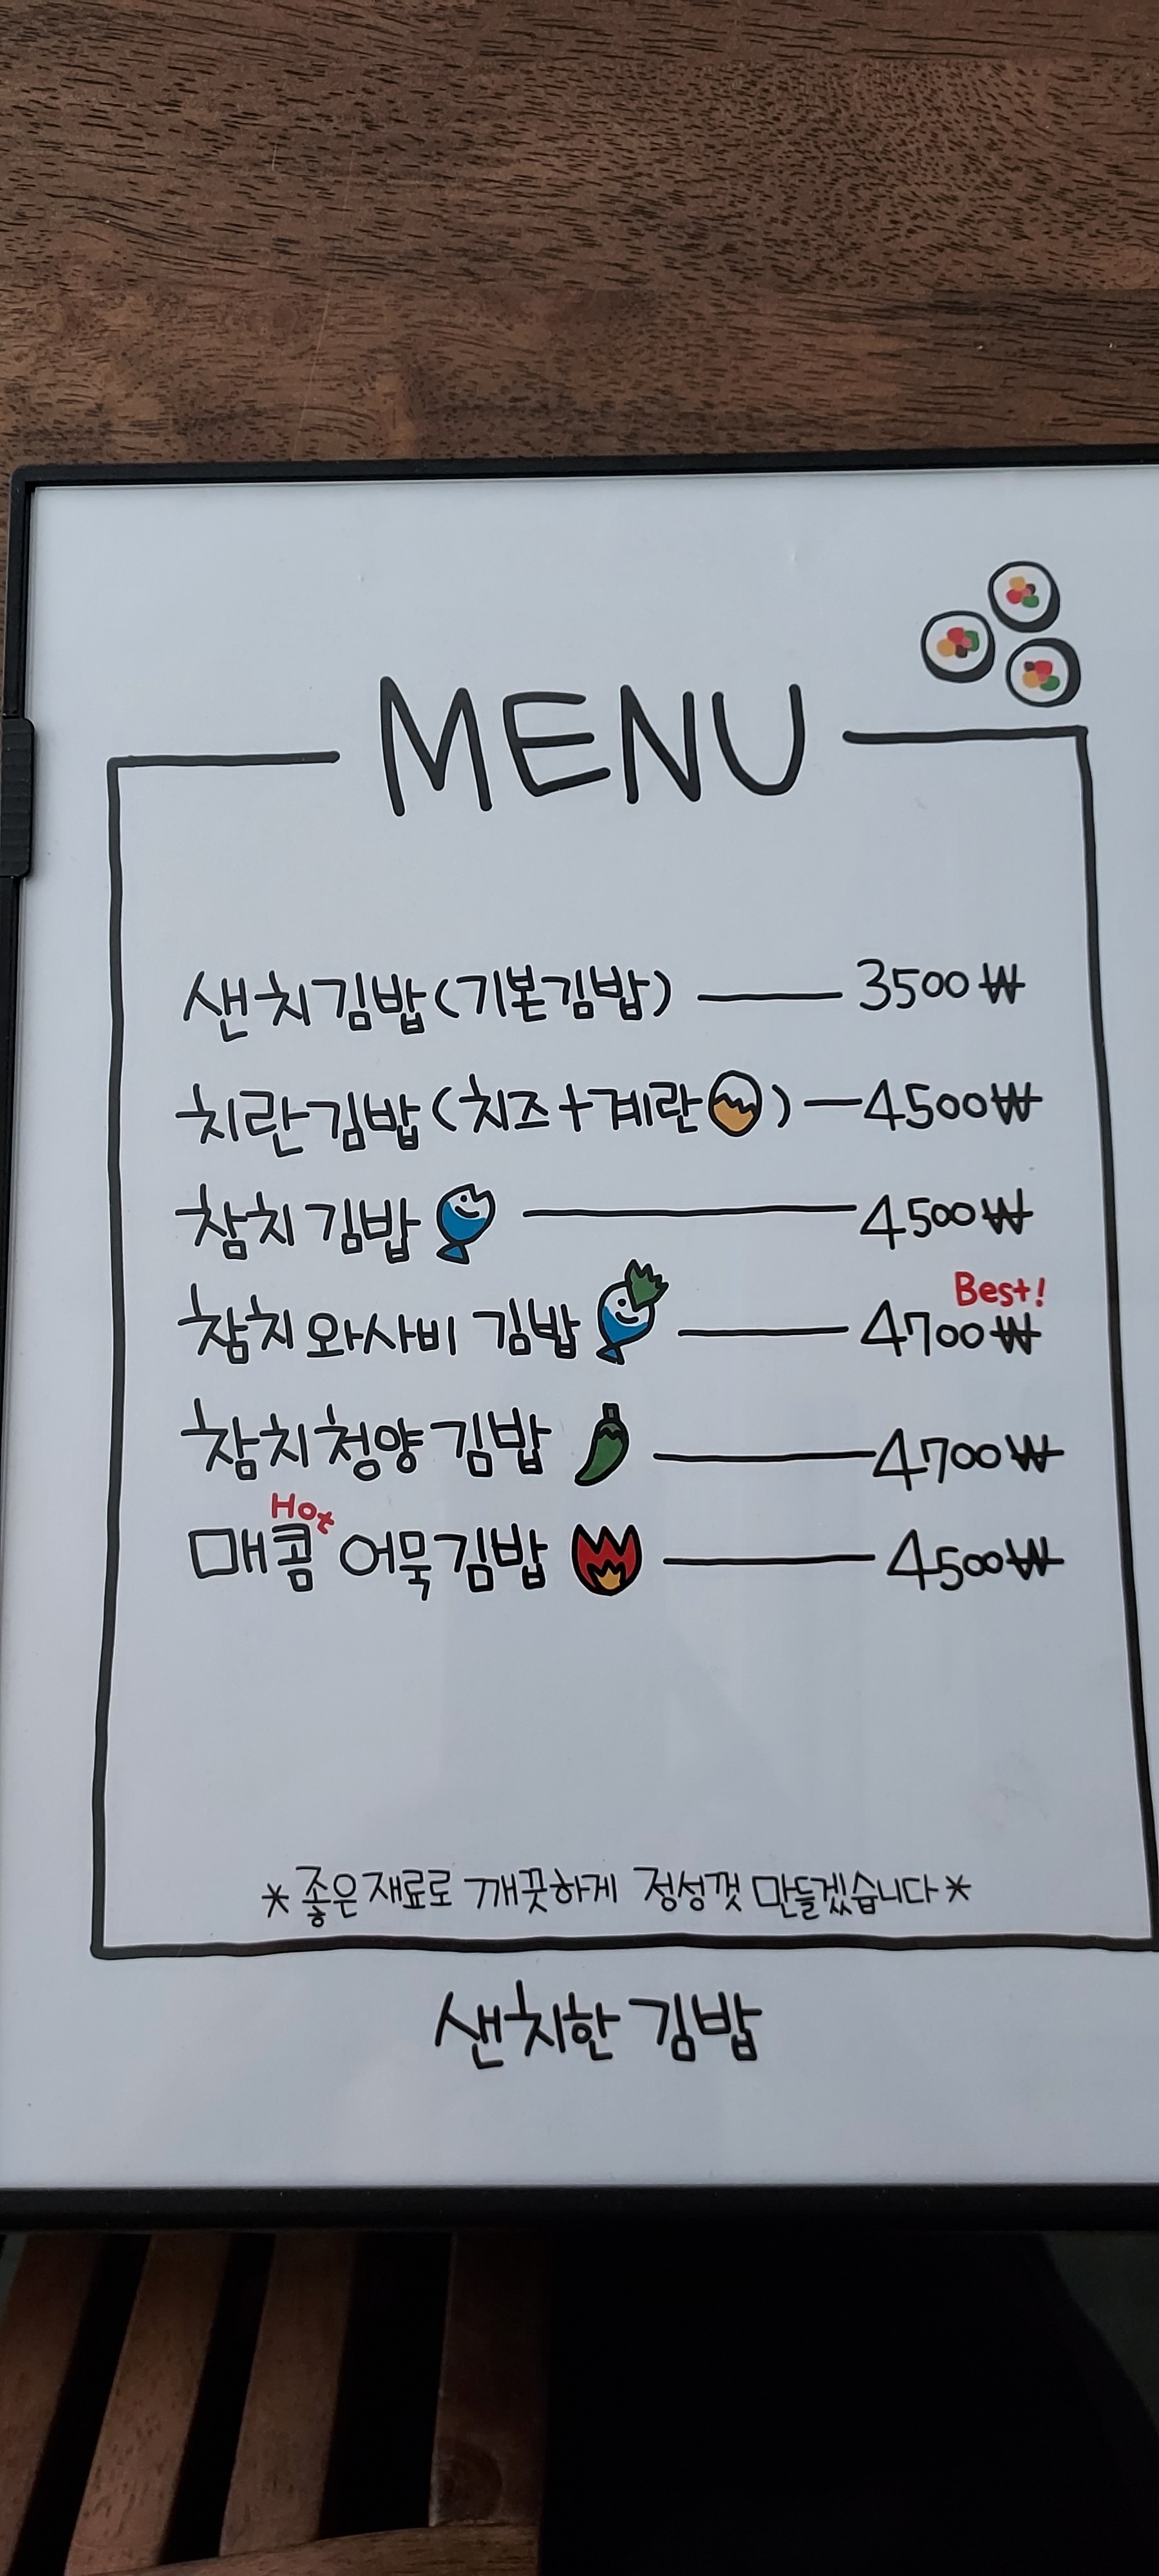 MENU
샌치김밥(기본김밥) 3500₩
치란김밥(치즈+계란) 4500₩
참치김밥 4500₩
Best!
참치와사비 김밥 4700₩
참치청양김밥 4700₩
Hot
매콤 어묵김밥 4500₩
*좋은재료로 깨끗하게 정성껏 만들겠습니다*
샌치한 김밥